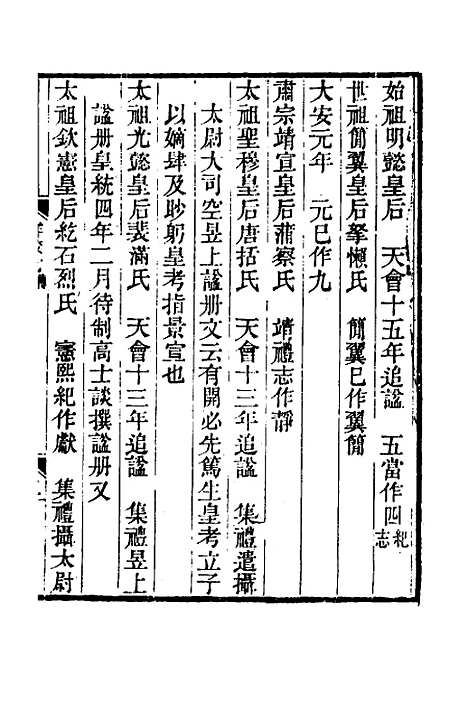 始祖明懿皇后 天會十五年追諡 五當作四紀志
世祖簡翼皇后拏懶氏 簡翼巳作翼簡
大安元年 元巳作九
肅宗靖宣皇后蒲察氏 靖禮志作靜
太祖聖穆皇后唐括氏 天會十三年追諡 集禮遣攝
太尉大司空昱上諡册文云有開必先篤生皇考立子
以嫡肆及眇躬皇考指景宣也
太祖光懿皇后裴滿氏 天會十三年追諡 集禮昱上
諡册皇統四年二月待制高士談撰諡册文
太祖欽憲皇后紇石烈氏 憲熙紀作獻 集禮攝太尉